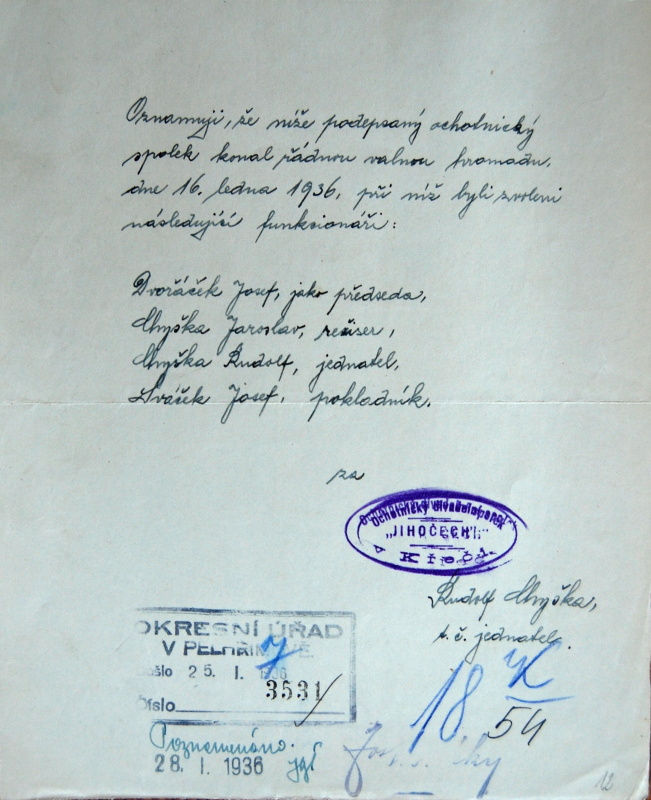 Oznamuji, že níže podepsaný ochotnický
spolek konal řádnou valnou hromadu,
dne 16. ledna 1936, při níž byli zvoleni
následující funkcionáři:
Dvořáček Josef, jako předseda,
Chyška Jaroslav, režiser,
Chyška Rudolf, jednatel,
Sváček Josef, pokladník.
za
Ochotnický divadelní spolek
"JIHOČECH"
v Křeči.
Rudolf Chyška,
t. č. jednatel.
OKRESNÍ ÚŘAD
V PELHŘIMOVĚ
Došlo 25. I. 1936
3531
Číslo
18
54
Poznamenáno.
28. I. 1936
12